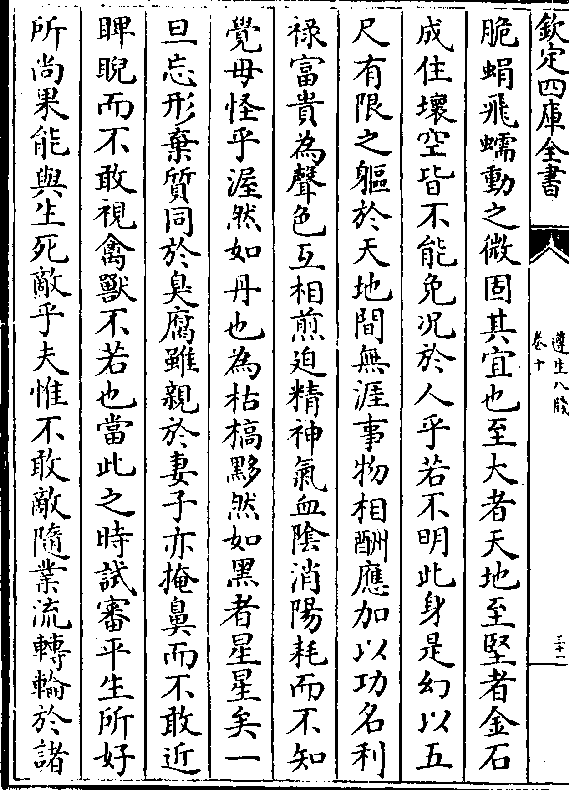 欽定四庫全書
遵生八牋
卷十
三十一
脆蜎飛蠕動之微固其宜也至大者天地至堅者金石
成住壞空皆不能免况於人乎若不明此身是幻以五
尺有限之軀於天地間無涯事物相酬應加以功名利
禄富貴為聲色互相煎迫精神氣血陰消陽耗而不知
覺毋怪乎渥然如丹也為枯槁黟然如黑者星星矣一
旦忘形棄質同於臭腐雖親於妻子亦掩鼻而不敢近
睥睨而不敢視禽獸不若也當此之時試審平生所好
所尚果能與生死敵乎夫惟不敢敵隨業流轉輪於諸